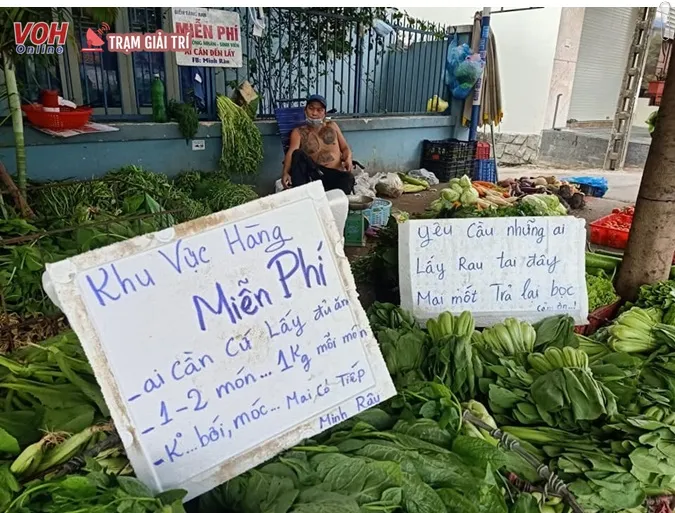 VOH
Online
TRẠM GIẢI TRÍ
MIỄN PHÍ
AI CẦN ĐẾN LẤY
FB: Minh Râu
Khu Vực Hàng
Miễn Phí
- ai Cần Cứ Lấy đủ ăn
- 1-2 món... 1Kg mỗi món
- K°... bới, móc... Mai Có Tiếp
Minh Râu
yêu Cầu những ai
Lấy Rau tại đây
Mai mốt Trả lại bọc
Cảm ơn!